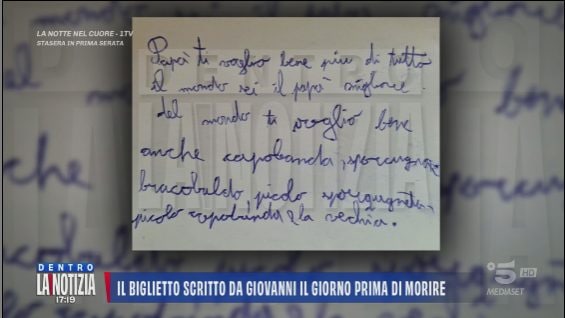 LA NOTTE NEL CUORE - 1TV
STASERA IN PRIMA SERATA
Papà ti voglio bene più di tutto
il mondo sei il papà migliore
del mondo ti voglio bene
anche capobanda, sporcugnone
bracobaldo picolo
picolo capobanda e la vechia.
DENTRO
LA NOTIZIA
17:19
IL BIGLIETTO SCRITTO DA GIOVANNI IL GIORNO PRIMA DI MORIRE
5 HD
MEDIASET